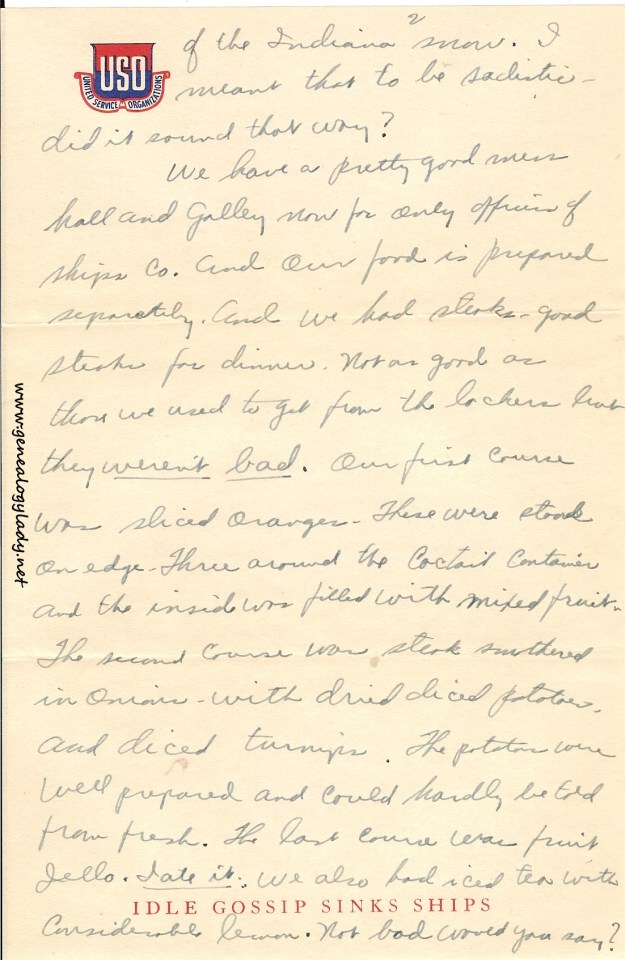 2
USO
UNITED SERVICE ORGANIZATIONS
of the Indiana snow. I
meant that to be sadistic -
did it sound that way?
We have a pretty good mess
hall and Galley now for only officers of
ships Co. And Our food is prepared
separately. And we had steaks - good
steaks for dinner. Not as good as
those we used to get from the lockers but
they weren't bad. Our first Course
was sliced oranges - These were stood
on edge - Three around the Coctail Container
and the inside was filled with mixed fruit -
The second Course was steak smothered
in Onions - with dried diced potatoes,
and diced turnips. The potatoes were
well prepared and could hardly be told
from fresh. The last Course was fruit
Jello. I ate it. We also had iced tea with
IDLE GOSSIP SINKS SHIPS
Considerable lemon. Not bad would you say?
www.genealogylady.net